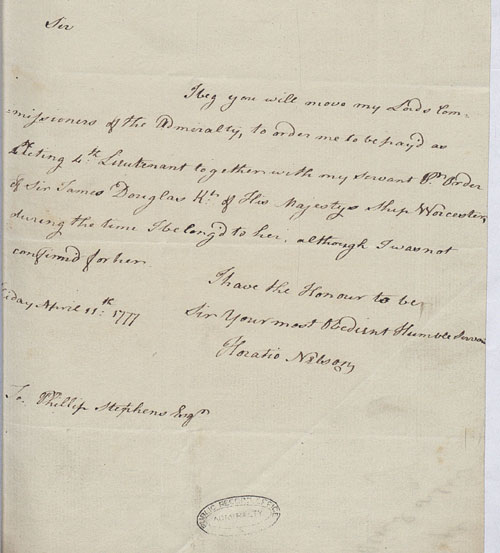 Sir
I beg you will move my Lords Com-
missioners of the Admiralty, to order me to be pay'd as
Acting 4.th Lieutenant together with my servant Pr. Order
of Sir James Douglas Kt. of His Majestys Ship Worcester,
during the time I belong'd to her, although I was not
confirm'd for her
I have the Honour to be
Sir Your most Obedient Humble Servan
Horatio Nelson
iday April 11:th 1777
To Phillip Stephens Esqr
PUBLIC RECORD OFFICE
ADMIRALTY